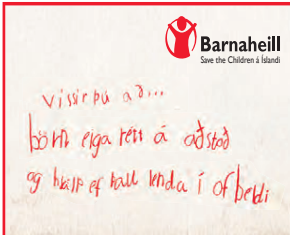 Barnaheill
Save the Children á Íslandi
vissir þú að...
börn eiga rétt á aðstoð
og hjálp ef lenda í ofbeldi